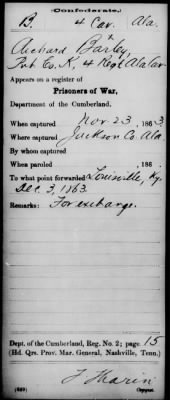 (Confederate.)
B. 4 Cav. Ala.
Richard Barley
Pvt Co. K, 4 Regt Ala Cav
Appears on a register of
Prisoners of War,
Department of the Cumberland.
When captured Nov 23, 1863
Where captured Jackson Co. Ala.
By whom captured
When paroled , 186 .
To what point forwarded Louisville, Ky.
Dec. 3, 1863.
Remarks: For exchange.
Dept. of the Cumberland, Reg. No. 2; page 15
(Hd. Qrs. Prov. Mar. General, Nashville, Tenn.)
Copyist.